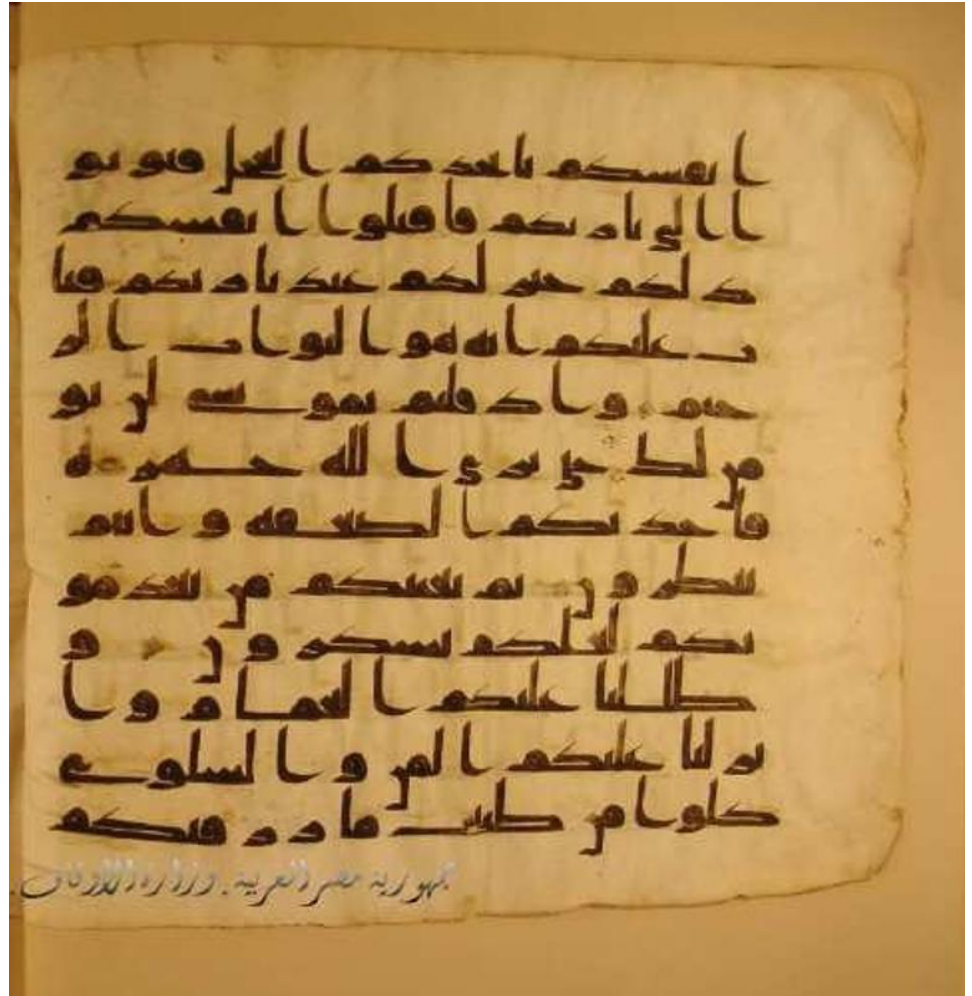 ا نفسكم باتخذ كم ا لعجل فتو بو
ا ا لى بار ئكم فا قتلو ا ا نفسكم
ذ لكم خير لكم عند بار ئكم فتا
ب عليكم ا نه هو ا لتو ا ب ا لر
حيم و ا ذ قلتم يموسى لن نو
من لك حتى نر ى ا لله جهر ة
فا خذ تكم ا لصعقه و ا نتم
تنظر و ن ثم بعثنكم من بعد مو
تكم لعلكم تشكر و ن و
ظللنا عليكم ا لغما م و ا
نز لنا عليكم ا لمن و ا لسلوى
كلو ا من طيبت ما ر ز قنكم
جمهورية مصر العربية . وزارة الأوقاف